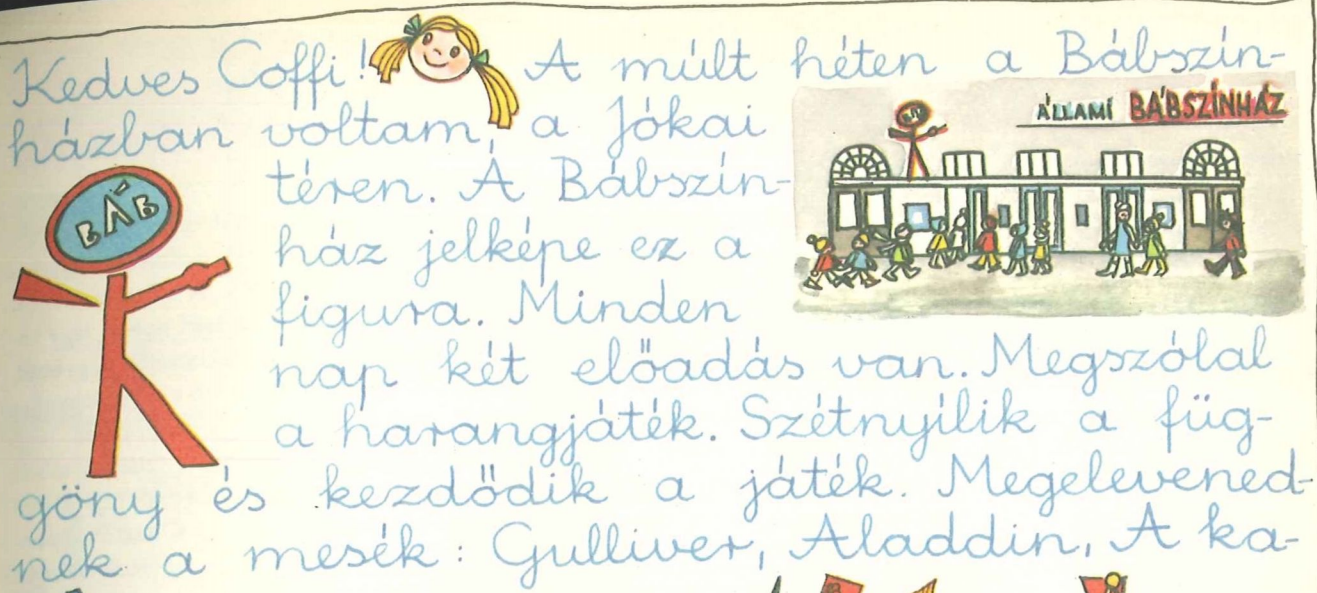 Kedves Coffi! A múlt héten a Bábszín-
házban voltam, a Jókai
téren. A Bábszín-
ház jelképe ez a
figura. Minden
nap két előadás van. Megszólal
a harangjáték. Szétnyílik a füg-
göny és kezdődik a játék. Megelevened-
nek a mesék: Gulliver, Aladdin, A ka-
BÁB
ÁLLAMI BÁBSZÍNHÁZ
BÁB